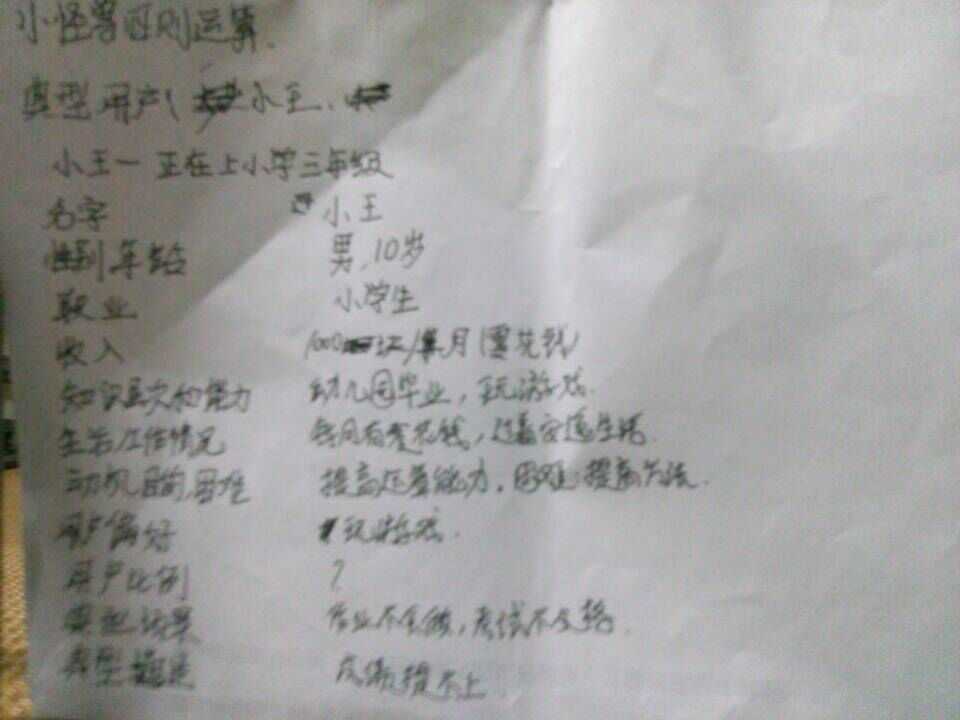 小怪兽四则运算
典型用户( 小王、
小王一 正在上小学三年级
名字 小王
性别,年龄 男,10岁
职业 小学生
收入 1000 元/每月(零花钱)
知识层次和能力 幼儿园毕业,玩游戏.
生活/工作情况 每月有零花钱,过着安逸生活.
动机,目的,困难 提高运算能力,困难:提高方法.
用户偏好 玩游戏.
用户比例 ?
典型场景 作业不会做,考试不及格.
典型描述 成绩提不上